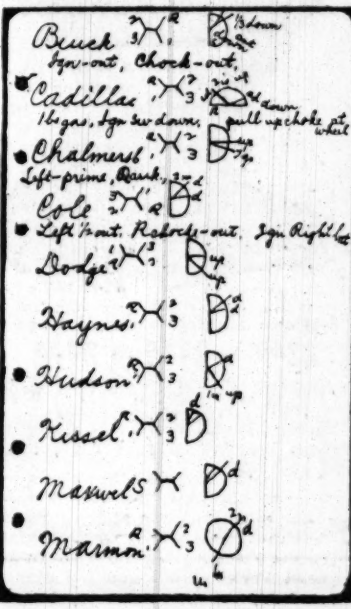 Buick 2 R 3 1 1/3 down
Ign-out, Chock-out,
Cadillac R 2 1 3 down
1 lbs gas, Ign Sw down, pull up choke at wheel
Chalmers R 2 1 3 up
Left-prime, Bank,
Cole 3 1 2 R d
Left out, R chock-out. Ign Right
Dodge 1 3 2 up up
Haynes, R 2 1 3 d d
Hudson R 2 1 3 d up
Kissel R 2 1 3 d
Maxwel S d
Marmon R 2 1 3 d